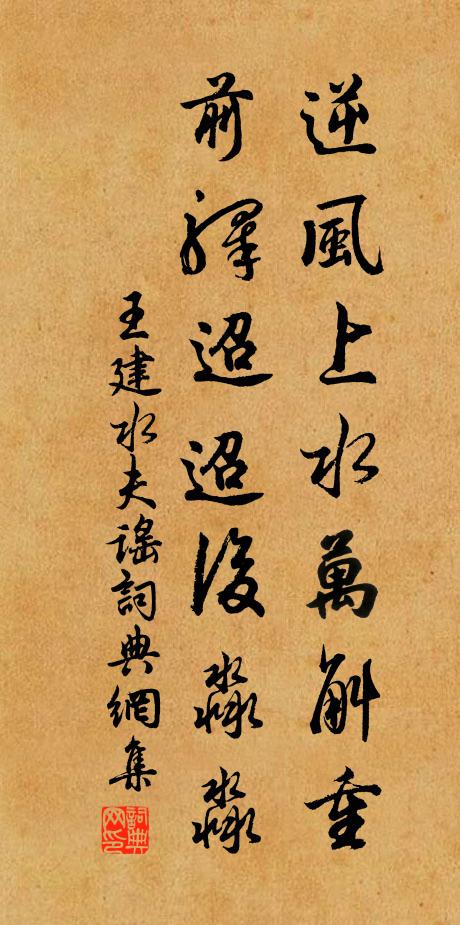 逆風上水萬斛重
前驛迢迢後淼淼
王建水夫謠詞典網集
詞典網印